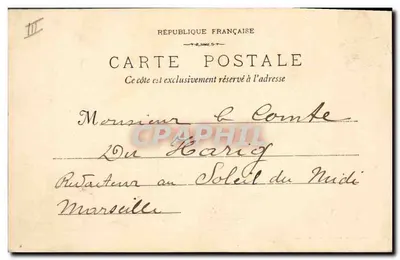 III
RÉPUBLIQUE FRANÇAISE
CARTE POSTALE
Ce côté est exclusivement réservé à l'adresse
Monsieur le Comte
CPAPHIL
Du Harig
Rédacteur au Soleil du Midi
Marseille